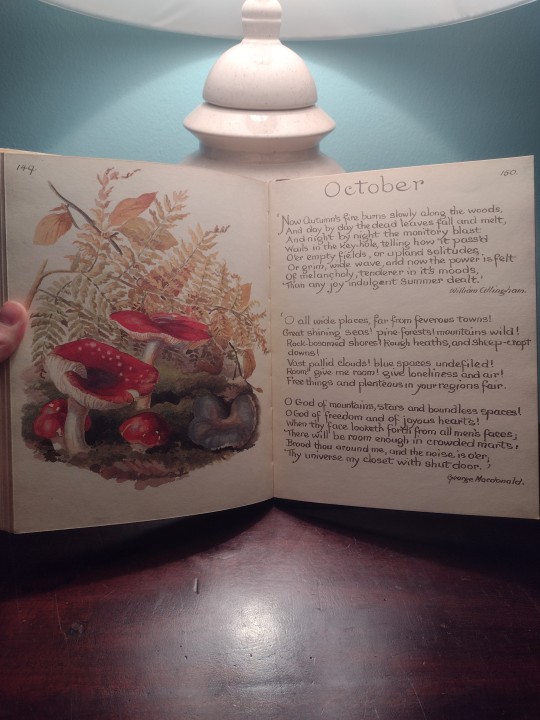 149
150.
October
'Now Autumn's fire burns slowly along the woods,
And day by day the dead leaves fall and melt,
And night by night the monitory blast
Wails in the key-hole, telling how it pass'd
O'er empty fields, or upland solitudes,
Or grim, wide wave, and now the power is felt
Of melancholy, tenderer in it's moods,
Than any joy indulgent Summer dealt.'
William Allingham.
'O all wide places, far from feverous towns!
Great shining seas! pine forests! mountains wild!
Rock-bosomed shores! Rough heaths, and sheep-cropt
downs!
Vast pallid clouds! blue spaces undefiled!
Room! give me room! give loneliness and air!
Free things and plenteous in your regions fair.
O God of mountains, stars and boundless spaces!
O God of freedom and of joyous hearts!
When thy face looketh forth from all men's faces,
There will be room enough in crowded marts;
Brood thou around me, and the noise is o'er,
Thy universe my closet with shut door.'
George Macdonald.